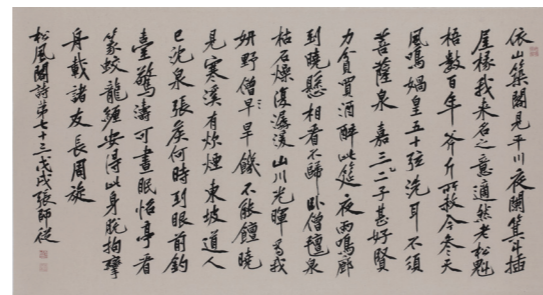 依山築閣見平川夜闌箕斗插
屋椽我來名之意適然老松魁
梧數百年斧斤所赦今參天
風鳴媧皇五十弦洗耳不須
菩薩泉嘉三二子甚好賢
力貧買酒醉此筵夜雨鳴廊
到曉懸相看不歸臥僧氈泉
枯石燥復潺湲山川光暉為我
妍野僧早旱饑不能饘曉
見寒溪有炊煙東坡道人
已沈泉張侯何時到眼前釣
臺驚濤可晝眠怡亭看
篆蛟龍纏安得此身脫拘攣
舟載諸友長周旋
松風閣詩第七十三戊戌張師從